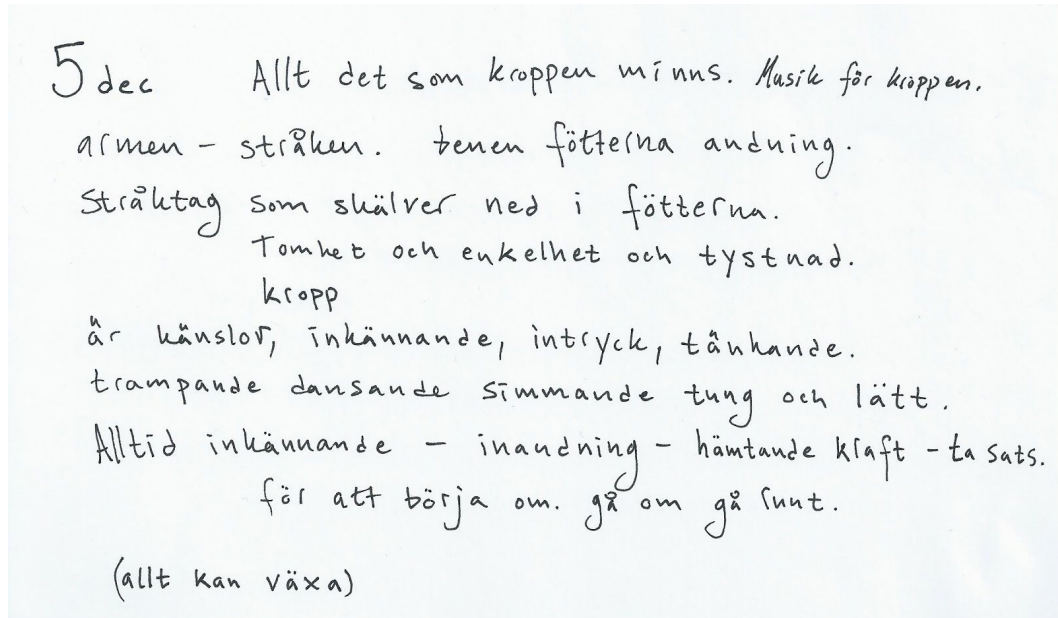 5 dec Allt det som kroppen minns. Musik för kroppen.
armen – stråken. benen fötterna andning.
Stråktag som skälver ned i fötterna.
Tomhet och enkelhet och tystnad.
kropp
är känslor, inkännande, intryck, tänkande.
trampande dansande simmande tung och lätt.
Alltid inkännande – inandning – hämtande kraft – ta sats.
för att börja om. gå om gå runt.
(allt kan växa)